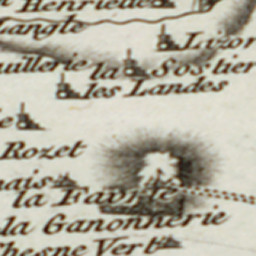 Henriette
Langle
Lizor
uillerie la Sostier
les Landes
e
Rozet
nais
la Favrie
la Ganonnerie
Chesne Vert